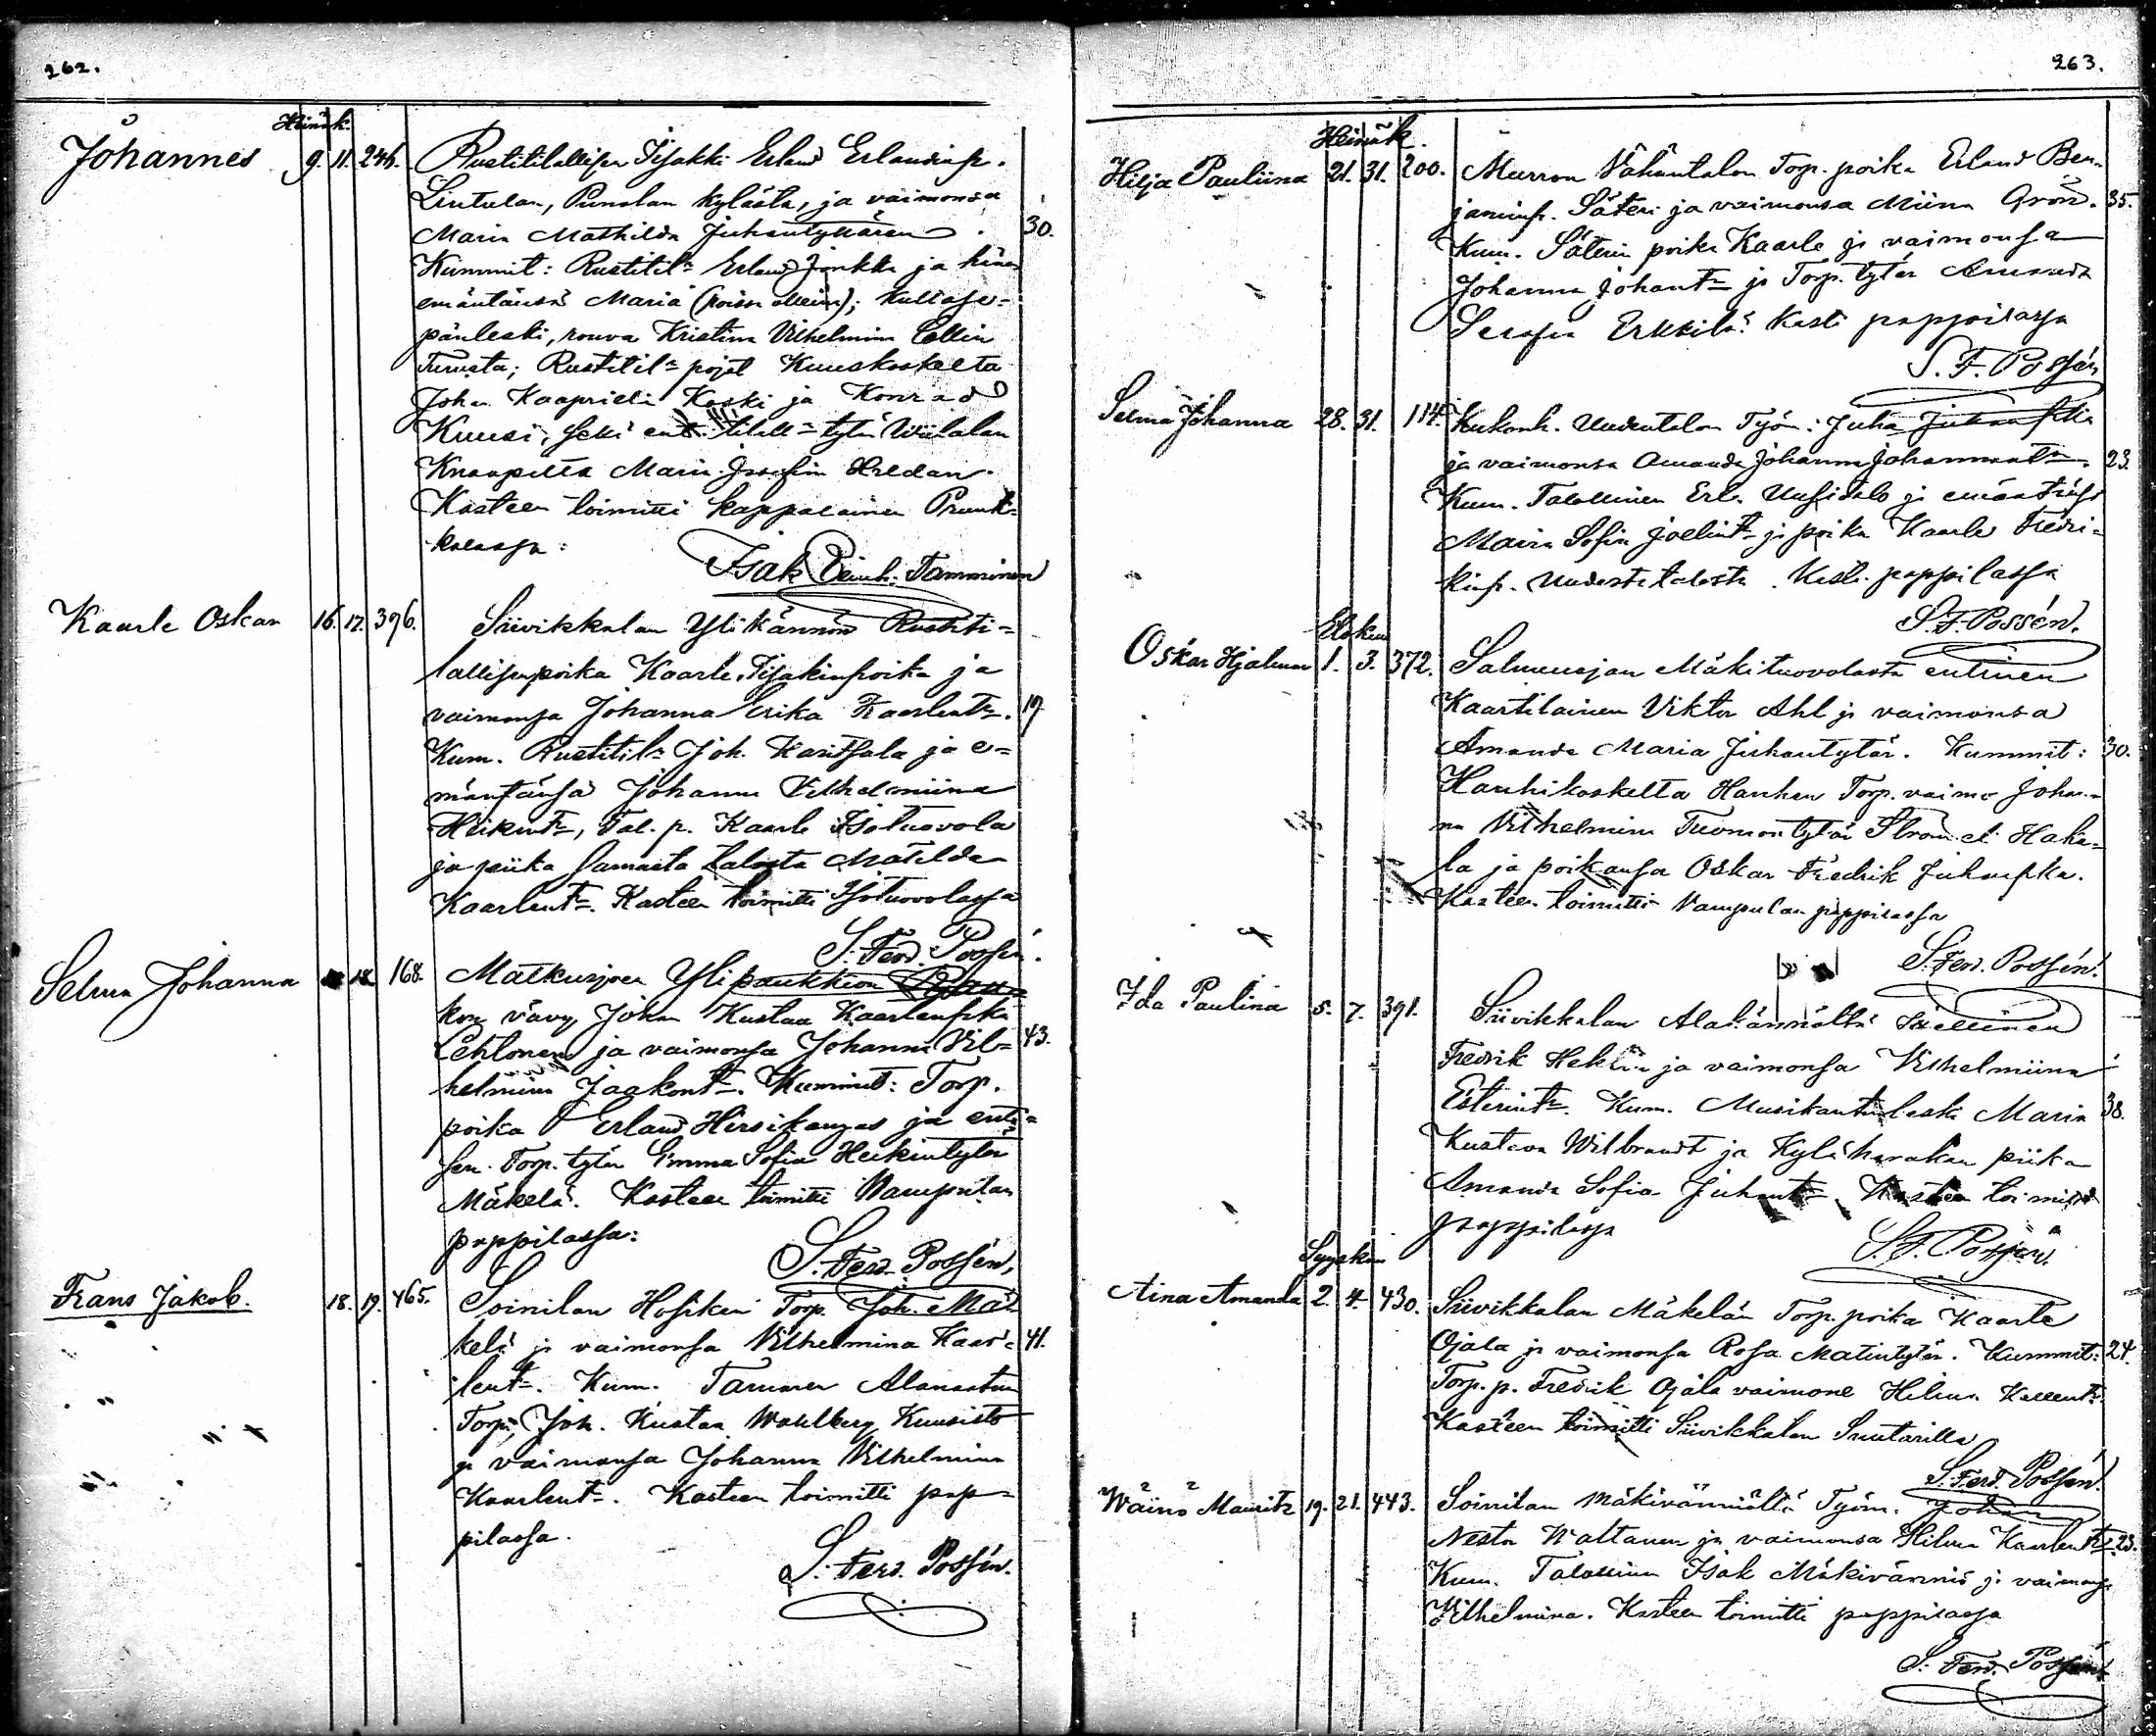 262.
Heinäk.
Johannes 9. 11. 246. Rustitilallisen Iisakki Erland Erlandinp.
Lintulan, Punolan kylästä, ja vaimonsa
Maria Mathilda Juhantyttären. 30.
Kummit: Rustitil. Erland Jonkka ja hänen
emäntänsä Maria (poissa ollein); Kultase-
pänleski, rouva Kristina Vilhelmina Collin
Turusta; Rustitil. pojat Kuuskoskelta
Johan Kaaprieli Koski ja Konrad
Kuusi, sekä ent. tilall. tytär Wiilalan
Knaapilta Maria Josefina Hredan.
Kasteen toimitti kappalainen Prunk-
kalassa:
Isak Tamminen
Kaarle Oskar 16. 17. 396. Siivikkalan Ylikännön Rustiti-
lallisenpoika Kaarle Iisakinpoika ja
vaimonsa Johanna Erika Kaarlent. 19
Kum. Rustitil. Joh. Karitsala ja e-
mäntänsä Johanna Vilhelmiina
Heikint., Tal. p. Kaarle Isotuovola
ja piika samasta talosta Matilda
Kaarlent. Kasteen toimitti Isotuovolassa
S. Ferd. Possén.
Selma Johanna 18. 168. Matkusjoen Ylipaukkion
kon vävy Johan Kustaa Kaarlenpka
Lehtonen ja vaimonsa Johanna Vil- 43.
helmina Jaakont. Kummit: Torp.
poika Erland Hirsikangas ja enti-
sen Torp. tytär Emma Sofia Heikintytär
Mäkelä. Kasteen toimitti Wampulan
pappilassa:
S. Ferd. Possén.
Frans Jakob. 18. 19. 465. Soinilan Hosiken Torp. Joh. Mä-
kelä ja vaimonsa Vilhelmina Kaar- 41.
lent. Kum. Tammen Alanastun
Torp. Joh. Kustaa Wahlberg Kuusisto
ja vaimonsa Johanna Vilhelmina
Kaarlent. Kasteen toimitti pap-
pilassa.
S. Ferd. Possén.
263.
Heinäk.
Hilja Pauliina 21. 31. 200. Murron Vähäntalon Torp. poika Erland Ben-
jaminp. Säteri ja vaimonsa Miina Grön. 35.
Kum. Säterin poika Kaarle ja vaimonsa
Johanna Johant. ja Torp. tytär Amanda
Serafia Erkkilä. Kasti pappilassa
S. F. Possén
Selma Johanna 28. 31. 114. Kukonh. Uudentalon Työm. Juha
ja vaimonsa Amanda Johanna Johannant. 23.
Kum. Talollinen Erl. Uusitalo ja emäntänsä
Maria Sofia Joelint. ja poika Kaarle Fredri-
kinp. Uudestatalosta. Kasti. pappilassa
S. F. Possén.
Elokuu
Oskar Hjalmar 1. 3. 372. Salmenojan Mäkituovolasta entinen
Kaartilainen Viktor Ahl ja vaimonsa
Amanda Maria Juhantytär. Kummit: 30.
Hanhikoskelta Hanhen Torp. vaimo Johan-
na Vilhelmina Tuomontytär Strom el. Haka-
la ja poikansa Oskar Fredrik Juhanpka.
Kasteen toimitti Vampulan pappilassa
S. Ferd. Possén.
Ida Paulina 5. 7. 391. Siivikkalan Alakännöltä itsellinen
Fredrik Heklin ja vaimonsa Vilhelmiina
Esterint. Kum. Musikantinleski Maria 38.
Kustava Wilbrandt ja Kyläharakan piika
Amanda Sofia Juhant. Kasteen toimitti
pappilassa
S. F. Possén.
Syyskuu
Aina Amanda 2. 4. 430. Siivikkalan Mäkelän Torp. poika Kaarle
Ojala ja vaimonsa Rosa Matintytär. Kummit: 24.
Torp. p. Fredrik Ojala vaimone Hilma Kallent.
Kasteen toimitti Siivikkalan Suutarilla
S. Ferd. Possén.
Wäinö Mauritz 19. 21. 443. Soinilan Mäkivänniältä Työm. Johan
Nestor Waltanen ja vaimonsa Hilma Kaarlent. 23.
Kum. Talollinen Isak Mäkivänniö ja vaimonsa
Vilhelmina. Kasteen toimitti pappilassa
S. Ferd. Possén